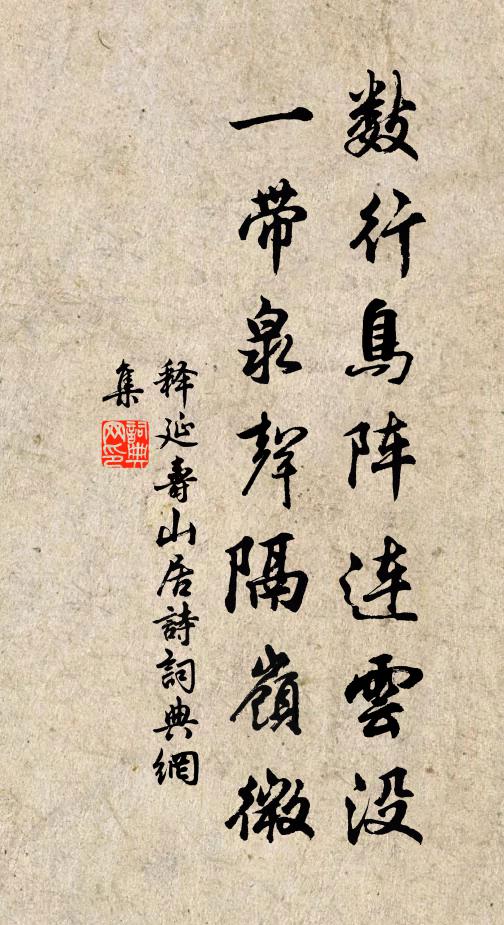 数行鳥阵連雲没
一带泉聲隔嶺微
释延壽山居詩詞典網
集
詞典
网印